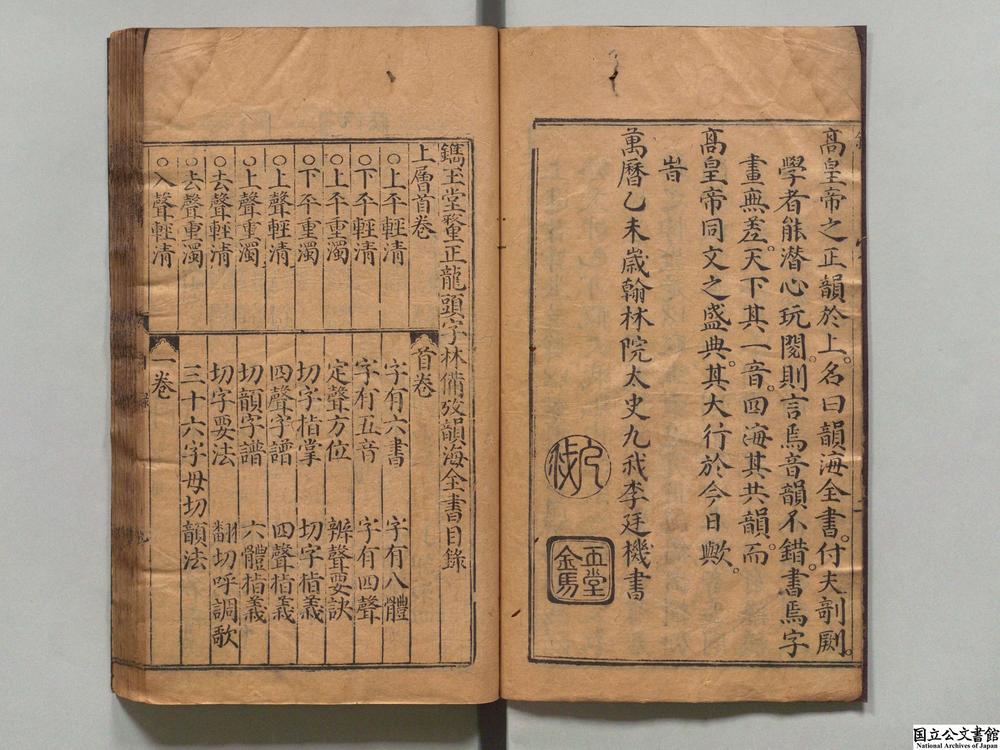 高皇帝之正韻於上。名曰韻海全書。付夫剞劂。
學者能潛心玩閱。則言焉音韻不錯。書焉字
畫無差。天下其一音。四海其共韻。而
高皇帝同文之盛典。其大行於今日歟。
旹
萬曆乙未歲翰林院太史九我李廷機書
九我
玉堂金馬
鐫玉堂釐正龍頭字林備攷韻海全書目錄
上層首卷
○上平輕清
○下平輕清
○上平重濁
○下平重濁
○上聲輕清
○上聲重濁
○去聲輕清
○去聲重濁
○入聲輕清
首卷
字有六書 字有八體
字有五音 字有四聲
定聲方位 辨聲要訣
切字栺掌 切字栺義
四聲字譜 四聲栺義
切韻字譜 六體栺義
切字要法 翻切呼調歌
三十六字母切韻法
一卷
国立公文書館
National Archives of Japan